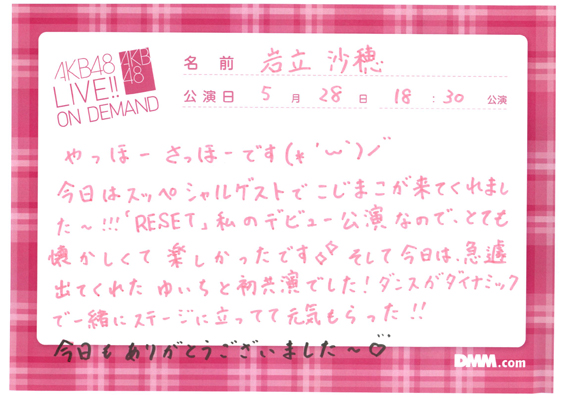 AKB48
LIVE!!
ON DEMAND
AKB
48
名前 岩立 沙穂
公演日 5月28日 18:30公演
やっほー さっほーです(*'ω`)ノ゛
今日はスッペシャルゲストで こじまこが来てくれまし
た〜!!!「RESET」私のデビュー公演なので、とても
懐かしくて 楽しかったです✧✧ そして今日は、急遽
出てくれた ゆいちと初共演でした!ダンスがダイナミック
で一緒にステージに立ってて元気もらった!!
今日もありがとうございました〜♡
DMM.com